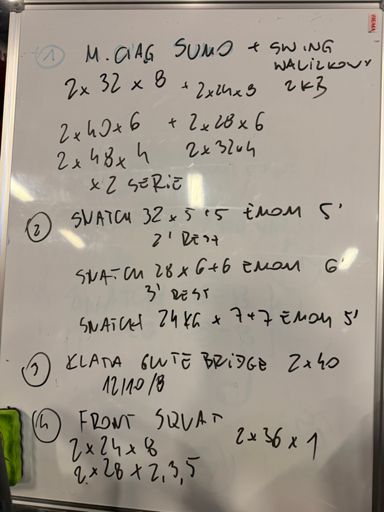 1 M. CIĄG SUMO + SWING WALIZKOWY
2 x 32 x 8 + 2x24x8 2 KB
2 x 40 x 6 + 2 x 28 x 6
2 x 48 x 4 2x32x4
x 2 SERIE
2 SNATCH 32 x 5+5 EMOM 5'
2' REST
SNATCH 28 x 6+6 EMOM 6'
3' REST
SNATCH 24KG x 7+7 EMOM 5'
3 KLATA GLUTE BRIDGE 2x40
12/10/8
4 FRONT SQUAT
2 x 24 x 8 2 x 36 x 1
2 x 28 x 2,3,5